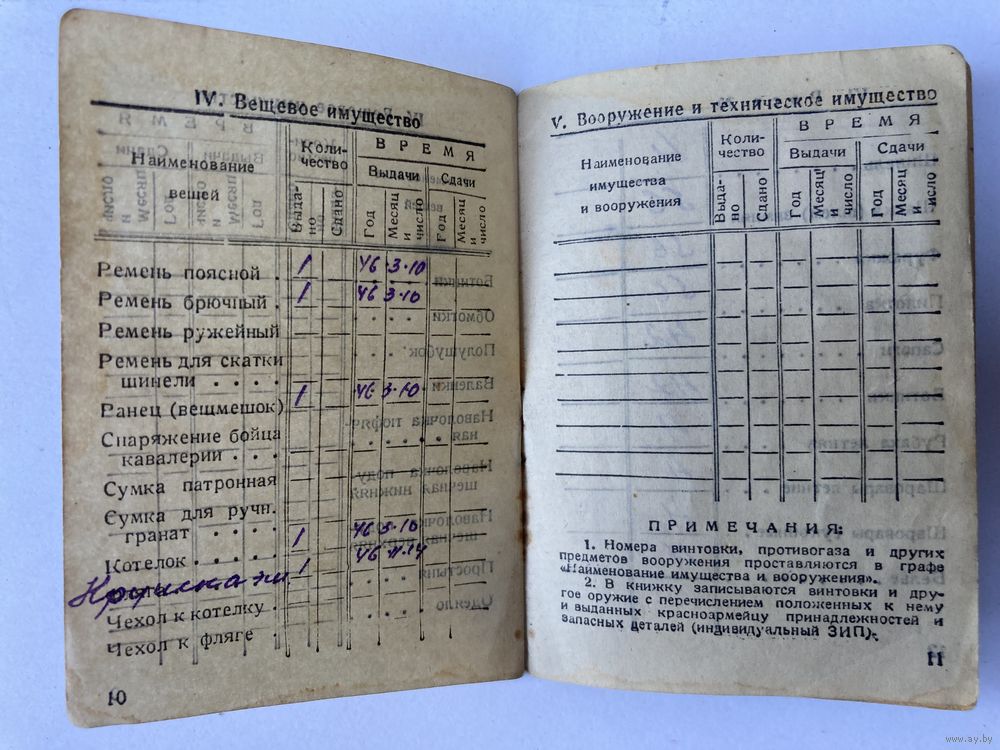 IV. Вещевое имущество
Наименование вещей
Коли-
чество
ВРЕМЯ
Выдачи
Сдачи
Выда-
но
Сдано
Год
Месяц
и
число
Год
Месяц
и
число
Ремень поясной . 1 46 3·10
Ремень брючный . 1 46 3·10
Ремень ружейный
Ремень для скатки
шинели . . . .
Ранец (вещмешок) 1 46 3·10
Снаряжение бойца
кавалерии . . .
Сумка патронная
Сумка для ручн.
гранат . . . .
Котелок . . . . 1 46 3·10
1 46
Чехол к котелку .
Чехол к фляге .
10
V. Вооружение и техническое имущество
Наименование
имущества
и вооружения
Коли-
чество
ВРЕМЯ
Выдачи
Сдачи
Выда-
но
Сдано
Год
Месяц
и
число
Год
Месяц
и
число
ПРИМЕЧАНИЯ:
1. Номера винтовки, противогаза и других
предметов вооружения проставляются в графе
«Наименование имущества и вооружения».
2. В книжку записываются винтовки и дру-
гое оружие с перечислением положенных к нему
и выданных красноармейцу принадлежностей и
запасных деталей (индивидуальный ЗИП).
11
www.ay.by